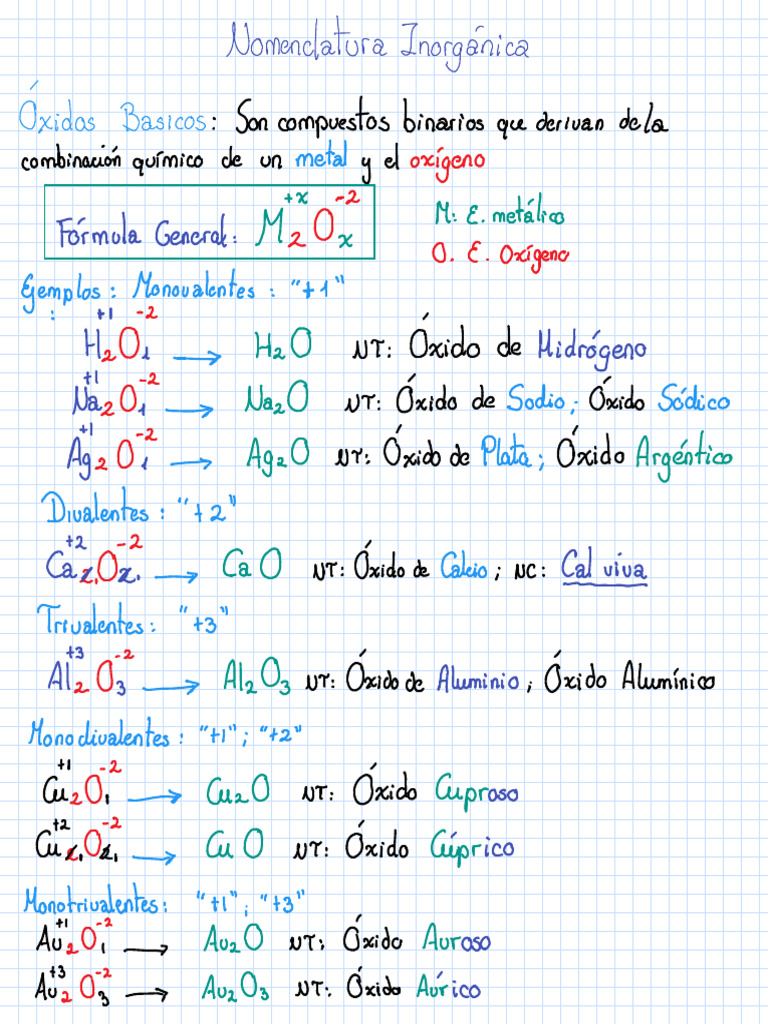 Nomenclatura Inorgánica
Óxidos Basicos: Son compuestos binarios que derivan de la
combinación químico de un metal y el oxígeno
Fórmula General: M₂⁺ˣOₓ⁻² M: E. metálico
O. E. Oxígeno
Ejemplos: Monovalentes: "+1"
:
H₂⁺¹O₁⁻² → H₂O NT: Óxido de Hidrógeno
Na₂⁺¹O₁⁻² → Na₂O NT: Óxido de Sodio; Óxido Sódico
Ag₂⁺¹O₁⁻² → Ag₂O NT: Óxido de Plata; Óxido Argéntico
Divalentes: "+2"
Ca₂₁⁺²O₂₁⁻² → CaO NT: Óxido de Calcio; NC: Cal viva
Trivalentes: "+3"
Al₂⁺³O₃⁻² → Al₂O₃ NT: Óxido de Aluminio; Óxido Alumínico
Monodivalentes: "+1"; "+2"
Cu₂⁺¹O₁⁻² → Cu₂O NT: Óxido Cuproso
Cu₂₁⁺²O₂₁⁻² → CuO NT: Óxido Cúprico
Monotrivalentes: "+1"; "+3"
Au₂⁺¹O₁⁻² → Au₂O NT: Óxido Auroso
Au₂⁺³O₃⁻² → Au₂O₃ NT: Óxido Aúrico